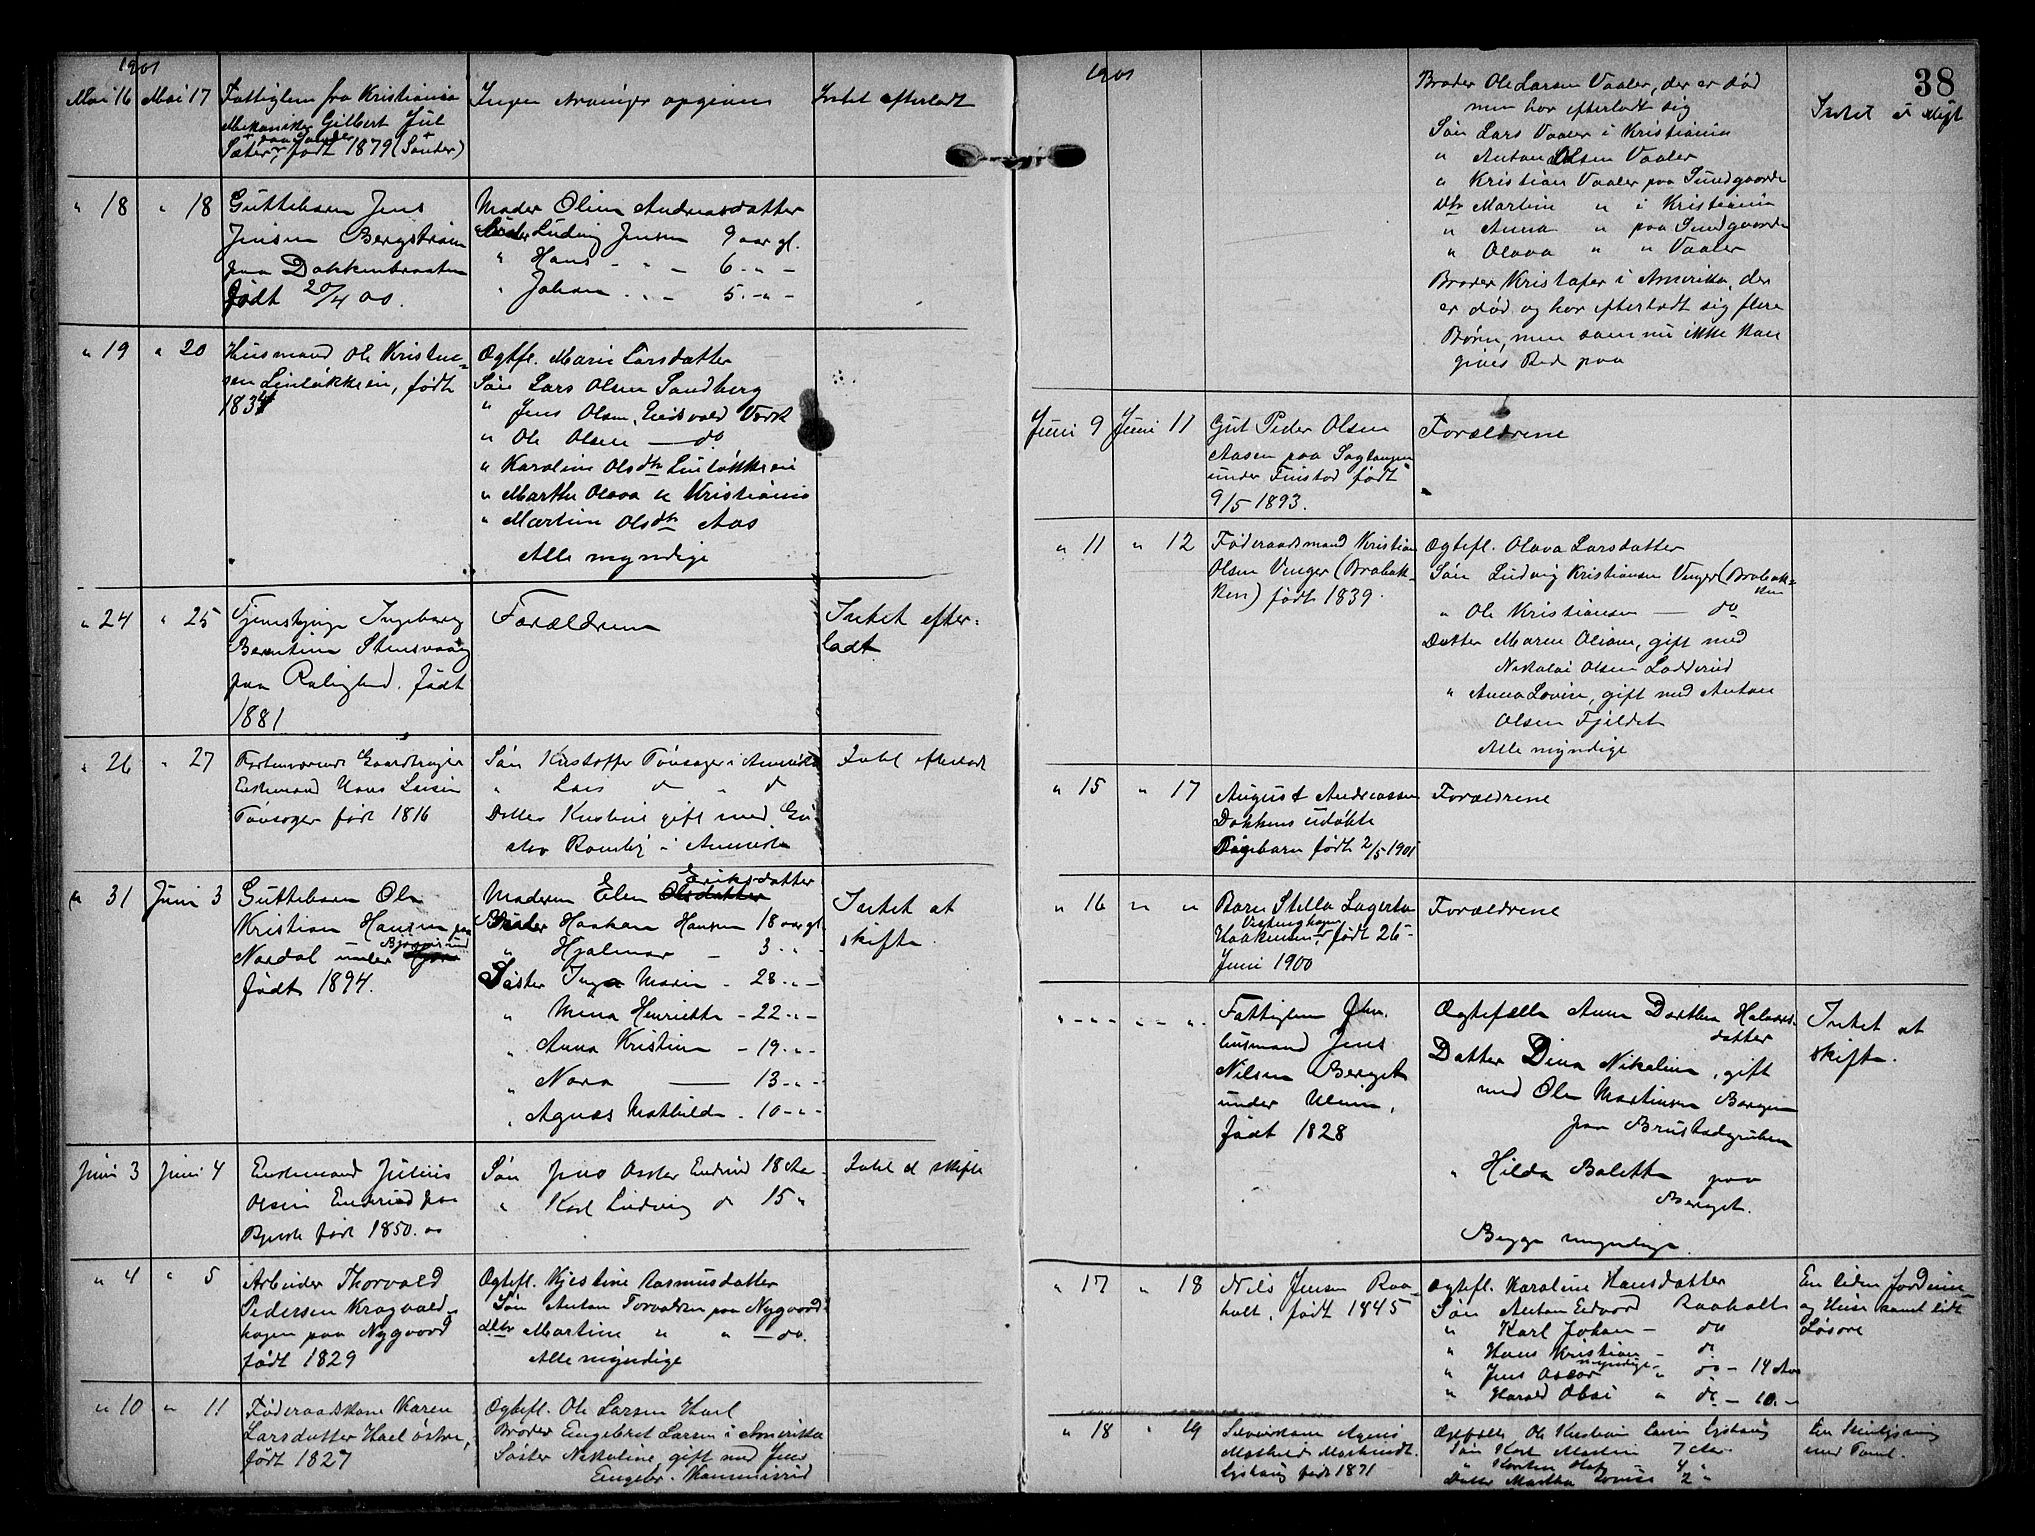 1901
Mai 16 Mai 17 Fattiglem fra Kristiania Ingen Arvinger opgivne Intet efterladt
Mekaniker Gilbert Jul
Sæter, født 1879 (Sander)
" 18 " 18 Guttebarn Jens Moder Oline Andreasdatter
Jensen Bergstrøm Broder Ludvig Jensen 9 aar gl.
paa Dokkenbraaten " Hans - " - 6 - " -
født 20/4 00. " Johan - " - 5 - " -
" 19 " 20 Husmand Ole Kristen- Ægtef. Marie Larsdatter
sen Linløkkeie, født Søn Lars Olsen Sandberg
1834 " Jens Olsen, Eidsvold Værk
" Ole Olsen — do
" Karoline Olsdtr Linløkkeie
" Marthe Olava " Kristiania
" Martine Olsdtr Aas
Alle myndige
" 24 " 25 Tjenestepige Ingeborg Forældrene Intet efter-
Berntine Stensvaag ladt.
paa Rolighed. født
1881
" 26 " 27 Forhenværende Gaardbruger Søn Kristoffer Tønsager i Amerika Intet efterladt
Enkemand Hans Larsen " Lars do " do
Tønsager født 1816 Datter Kristine gift med Gu-
stav i Amerika
" 31 Juni 3 Guttebarn Ole Moderen Elen Eriksdatter Intet at
Kristian Hansen paa Broder Haakon Hansen 18 aar gl. skifte.
Nordal under " Hjalmar - 3 " -
født 1894. Søster Inga Marie - 28 " -
" Mina Henriette - 22 " -
" Anna Kristine - 19 " -
" Nora — 13 " -
" Agnes Mathilde - 10 " -
Juni 3 Juni 4 Enkemand Julius Søn Jens Oskar Endrud 18 Aar Intet at skifte
Olsen Endrud paa " Karl Ludvig do 15 "
født 1850.
" 4 " 5 Arbeider Thorvald Ægtef. Kjestine Rasmusdatter
Pedersen Kragvald- Søn Anton Torvaldsen paa Nygaard
hagen paa Nygaard Dtr Martine " " — do.
født 1829 Alle myndige
" 10 " 11 Føderaadskone Karen Ægtef. Ole Larsen Hoel
Larsdatter Hoel østre, Broder Engebret Larsen i Amerika
født 1827 Søster Nikoline, gift med Jens
Engebr.
38
1901
Broder Ole Larsen Vaaler, der er død Intet at skift
men har efterladt sig
Søn Lars Vaaler i Kristiania
" Anton Olsen Vaaler
" Kristian Vaaler paa Sundgaarden
Dtr Martine " i Kristiania
" Anna " paa Sundgaarden
" Olava " " Vaaler
Broder Kristofer i Amerika, der
er død og har efterladt sig flere
Børn, men som nu ikke kan
gives Rede paa
Juni 9 Juni 11 Gut Peder Olsen Forældrene
Aasen paa Saglangen
under Finstad født
9/5 1893.
" 11 " 12 Føderaadsmand Kristian Ægtef. Olava Larsdatter
Olsen Venger (Brobak- Søn Ludvig Kristiansen Venger (Brobak-
ken) født 1839. ken
" Ole Kristiansen — do
Datter Maren Oliane, gift med
Nikolai Olsen Ladderud
" Anna Lovise, gift med Anton
Olsen Fjeldet
Alle myndige
" 15 " 17 August Andreassen Forældrene
Dokkens udøbte
Pigebarn født 2/5 1901
" 16 " " Barn Stella Lagerta Forældrene
Haakensen, født 26
Juni 1900
" - - " - - " Fattiglem Fhv. Ægtefælle Anne Dorthea Halvors- Intet at
husmand Jens datter skifte.
Nilsen Berget Datter Dina Nikoline, gift
under Ulvin, med Ole Martinsen Borgen
født 1828 paa Brustadgruben
" Hilda Bolette paa
Berget.
Begge myndige.
" 17 " 18 Nils Jensen Raa- Ægtef. Karoline Hansdatter En liden Jordeien-
holt, født 1845 Søn Anton Edvard Raaholt og Huse samt lidt
" Karl Johan — do Løsøre
" Hans Kristian - do
myndige
" Jens Oskar " do - 14 Aar
" Harald Obai " do - 10 -
" 18 " 19 Agnes Ægtefælle Ole Kristian Larsen
Mathilde Søn Karl Martin 7 Aar med Tomt.
født 1871 " Olaf 4 "
Datter Martha Lovise 2 "